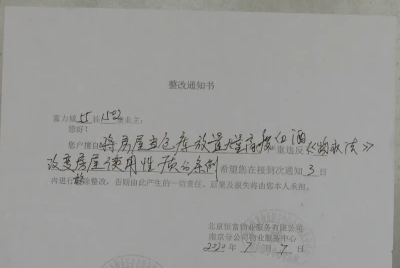 整改通知书
富力城 栋 1502 业主:
您好!
您户擅自将房屋当仓库放置大量高度白酒 严重违反《物权法》
改变房屋使用性质的条例 希望您在接到次通知 3 日
内进行 除整改,否则由此产生的一切责任、后果及损失将由您本人承担。
北京恒富物业服务有限公司
南京分公司物业服务中心
2020年 7 月 7 日